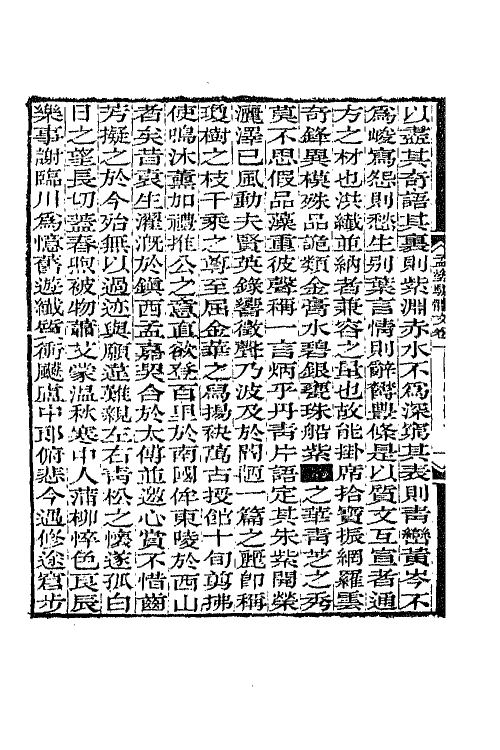 以盡其奇語其裏則紫淵赤水不爲深窮其表則青巒黃岑不
爲峻寫怨則愁生別葉言情則辭鬱豐條是以質文互宣者通
方之材也洪纖並納者兼容之量也故能掛席拾寶振網羅雲
奇鋒異模殊品詭類金膏水碧銀甕珠船紫之華青芝之秀
莫不思假品藻重彼聲稱一言炳乎丹青片語定其朱紫閒榮
灑澤已風動夫賢英錄響徵聲乃波及於閭陋一篇之麗卽稱
瓊樹之枝千乘之尊至屈金華之爲揚袂萬古授館十旬剪拂
使鳴沐薰加禮推公之意直欲登百里於南國侔東陵於西山
者矣昔袁生濯溉於鎮西孟嘉契合於太傅並邀心賞不惜齒
芳擬之於今殆無以過迹與願違難親左右青松之懷遂孤白
日之華長切蓋春煦被物蕭艾蒙溫秋寒中人蒲柳悴色良辰
樂事謝臨川爲憶舊遊纖質衝飇盧中郎俯悲今遇修途窘步